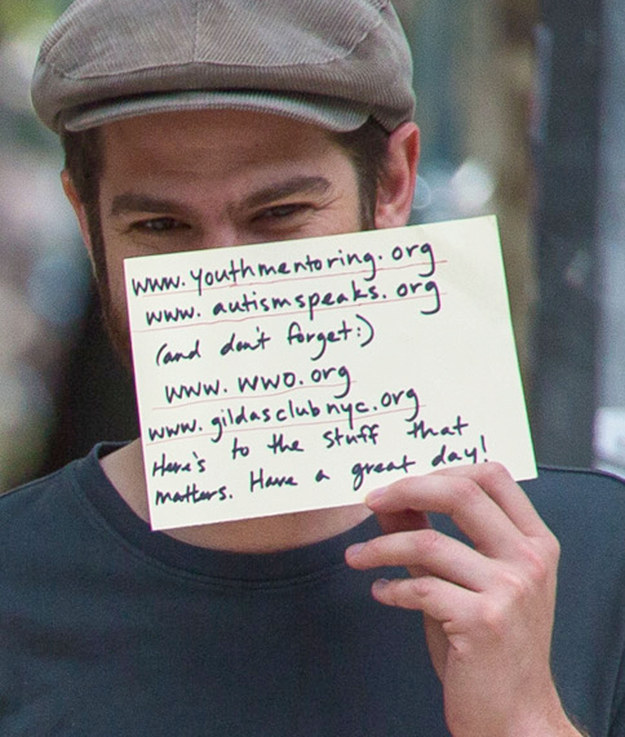 www.youthmentoring.org
www.autismspeaks.org
(and don't forget:)
www.wwo.org
www.gildasclubnyc.org
Here's to the stuff that
matters. Have a great day!